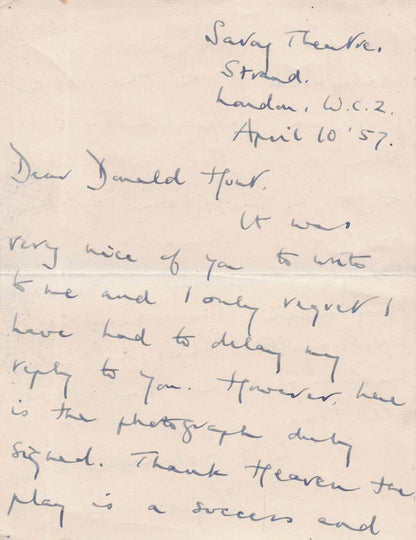 Savoy Theatre,
Strand.
London. W.C.2.
April 10 '57.
Dear Donald Hunt.
It was
very nice of you to write
to me and I only regret I
have had to delay my
reply to you. However, here
is the photograph duly
signed. Thank Heaven the
play is a success and